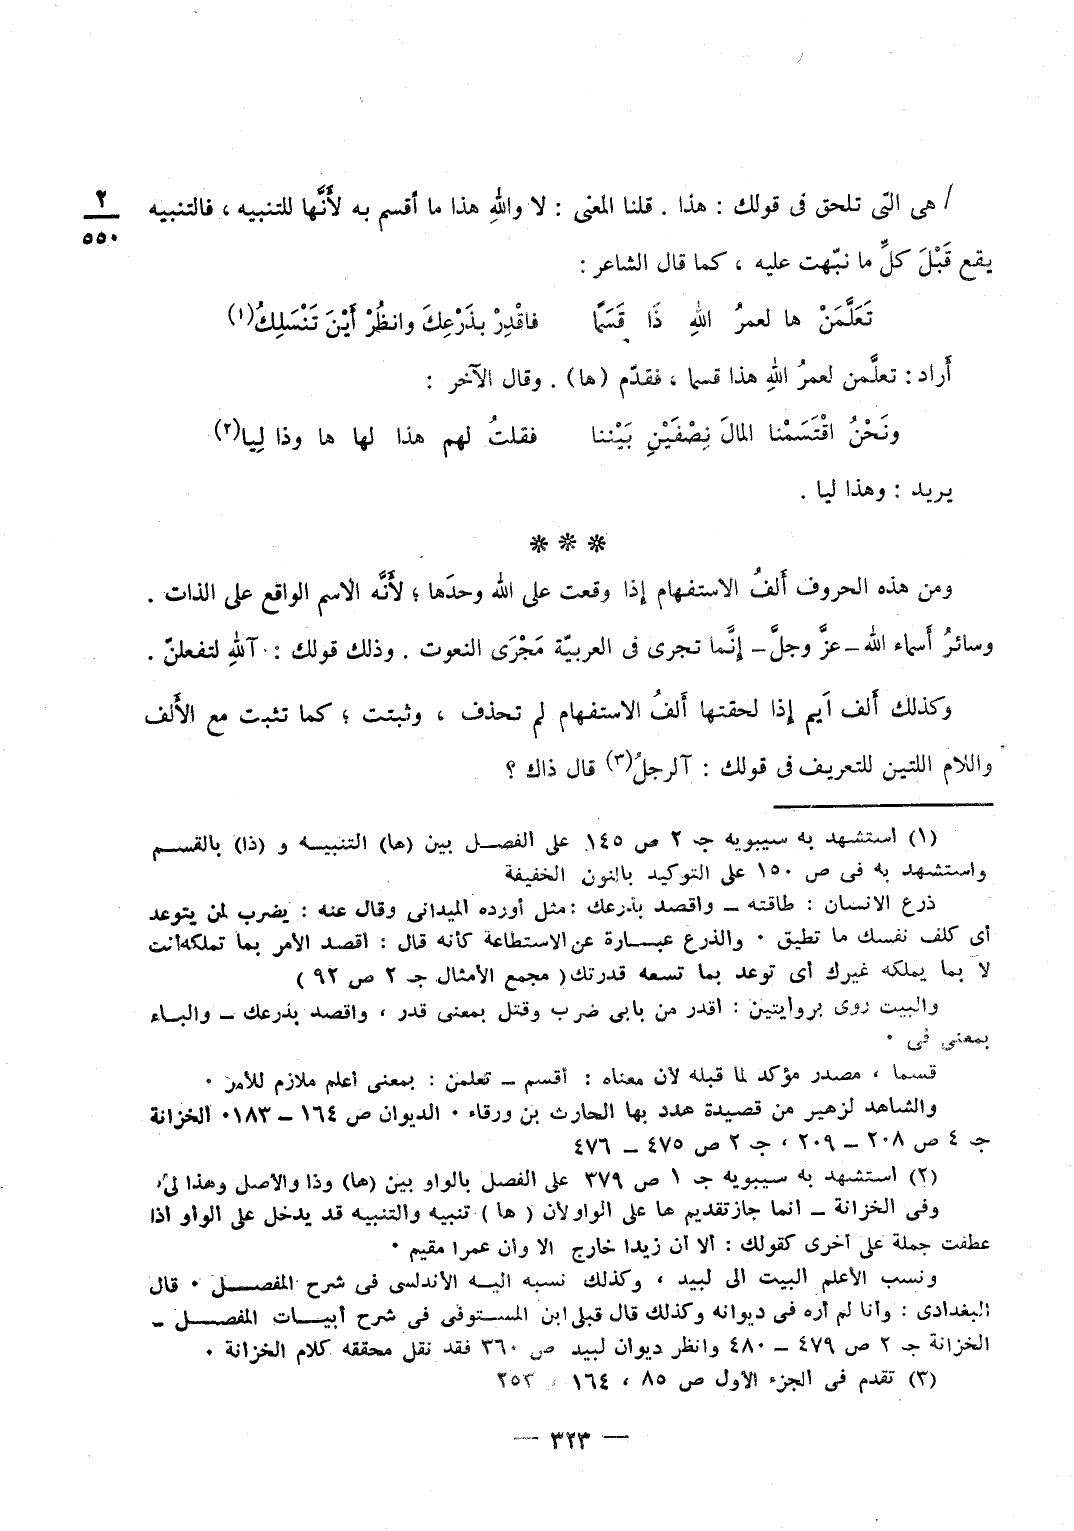 ٢
٥٥٠
/ هى التى تلحق فى قولك : هذا . قلنا المعنى : لا واللهِ هذا ما أقسم به لأَنَّها للتنبيه ، فالتنبيه
يقع قَبْلَ كلِّ ما نبّهت عليه ، كما قال الشاعر :
تَعَلَّمَنْ ها لعمرُ اللهِ ذَا قَسَمًا فاقْدِرْ بذَرْعِكَ وانظُرْ أَيْنَ تَنْسَلِكُ(١)
أَراد : تعلَّمن لعمرُ اللهِ هذا قسما ، فقدّم (ها) . وقال الآخر :
ونَحْنُ اقْتَسَمْنا المالَ نِصْفَيْنِ بَيْننا فقلتُ لهم هذا لها ها وذا لِيا(٢)
يريد : وهذا ليا .
* * *
ومن هذه الحروف أَلفُ الاستفهام إذا وقعت على الله وحدَها ؛ لأَنَّه الاسم الواقع على الذات .
وسائرُ أَسماء الله – عزَّ وجلَّ – إنَّما تجرى فى العربيّة مَجْرَى النعوت . وذلك قولك : آللهِ لتفعلنّ .
وكذلك أَلف اَيم إذا لحقتها أَلفُ الاستفهام لم تحذف ، وثبتت ؛ كما تثبت مع الأَلف
واللام اللتين للتعريف فى قولك : آلرجلُ(٣) قال ذاك ؟
(١) استشهد به سيبويه جـ ٢ ص ١٤٥ على الفصل بين (ها) التنبيه و (ذا) بالقسم
واستشهد به فى ص ١٥٠ على التوكيد بالنون الخفيفة
ذرع الانسان : طاقته – واقصد بذرعك : مثل أورده الميدانى وقال عنه : يضرب لمن يتوعد
أى كلف نفسك ما تطيق ٠ والذرع عبارة عن الاستطاعة كأنه قال : اقصد الأمر بما تملكه أنت
لا بما يملكه غيرك أى توعد بما تسعه قدرتك ( مجمع الأمثال جـ ٢ ص ٩٢ )
والبيت روى بروايتين : اقدر من بابى ضرب وقتل بمعنى قدر ، واقصد بذرعك – والباء
بمعنى فى ٠
قسما ، مصدر مؤكد لما قبله لأن معناه : أقسم – تعلمن : بمعنى أعلم ملازم للأمر ٠
والشاهد لزهير من قصيدة هدد بها الحارث بن ورقاء ٠ الديوان ص ١٦٤ – ١٨٣ ٠ الخزانة
جـ ٤ ص ٢٠٨ – ٢٠٩ ، جـ ٢ ص ٤٧٥ – ٤٧٦
(٢) استشهد به سيبويه جـ ١ ص ٣٧٩ على الفصل بالواو بين (ها) وذا والأصل وهذا لى
وفى الخزانة – انما جاز تقديم ها على الواو لأن ( ها ) تنبيه والتنبيه قد يدخل على الواو اذا
عطفت جملة على أخرى كقولك : ألا أن زيدا خارج الا وان عمرا مقيم ٠
ونسب الأعلم البيت الى لبيد ، وكذلك نسبه اليه الأندلسى فى شرح المفصل ٠ قال
البغدادى : وأنا لم أره فى ديوانه وكذلك قال قبلى ابن المستوفى فى شرح أبيات المفصل –
الخزانة جـ ٢ ص ٤٧٩ – ٤٨٠ وانظر ديوان لبيد ص ٣٦٠ فقد نقل محققه كلام الخزانة ٠
(٣) تقدم فى الجزء الأول ص ٨٥ ، ١٦٤ ، ٢٥٣
— ٣٢٣ —